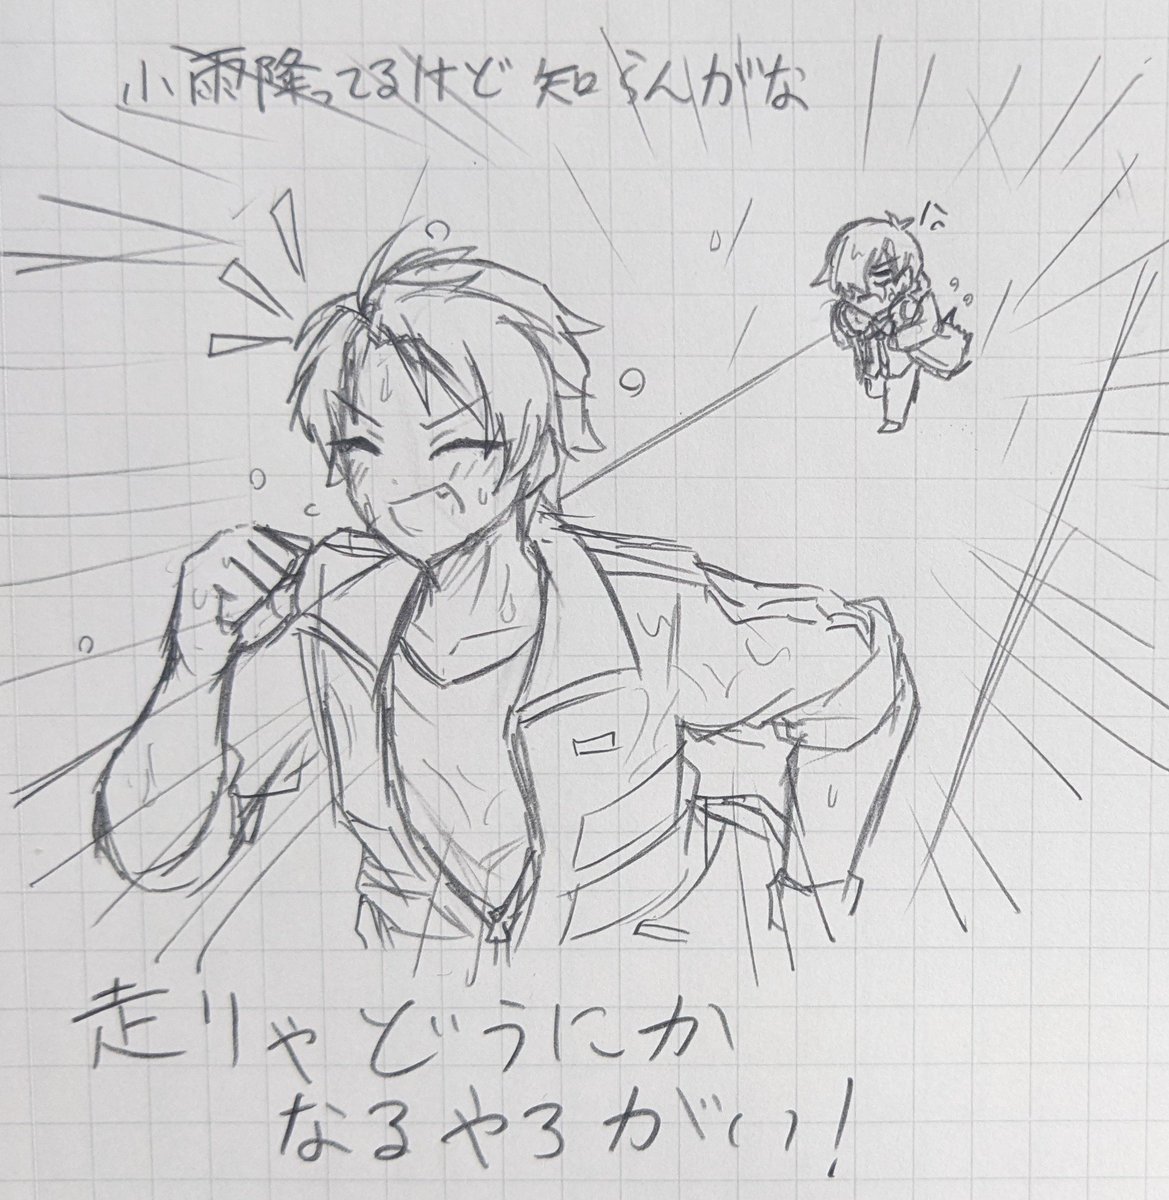 小雨降ってるけど 知らんがな
走りゃどうにか
なるやろがいっ!